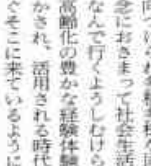 念におきまって社会生活
なんで行くようしむけら
高齢化の豊かな経験体験
かされ、活用される時代
ぐそこに来ているように